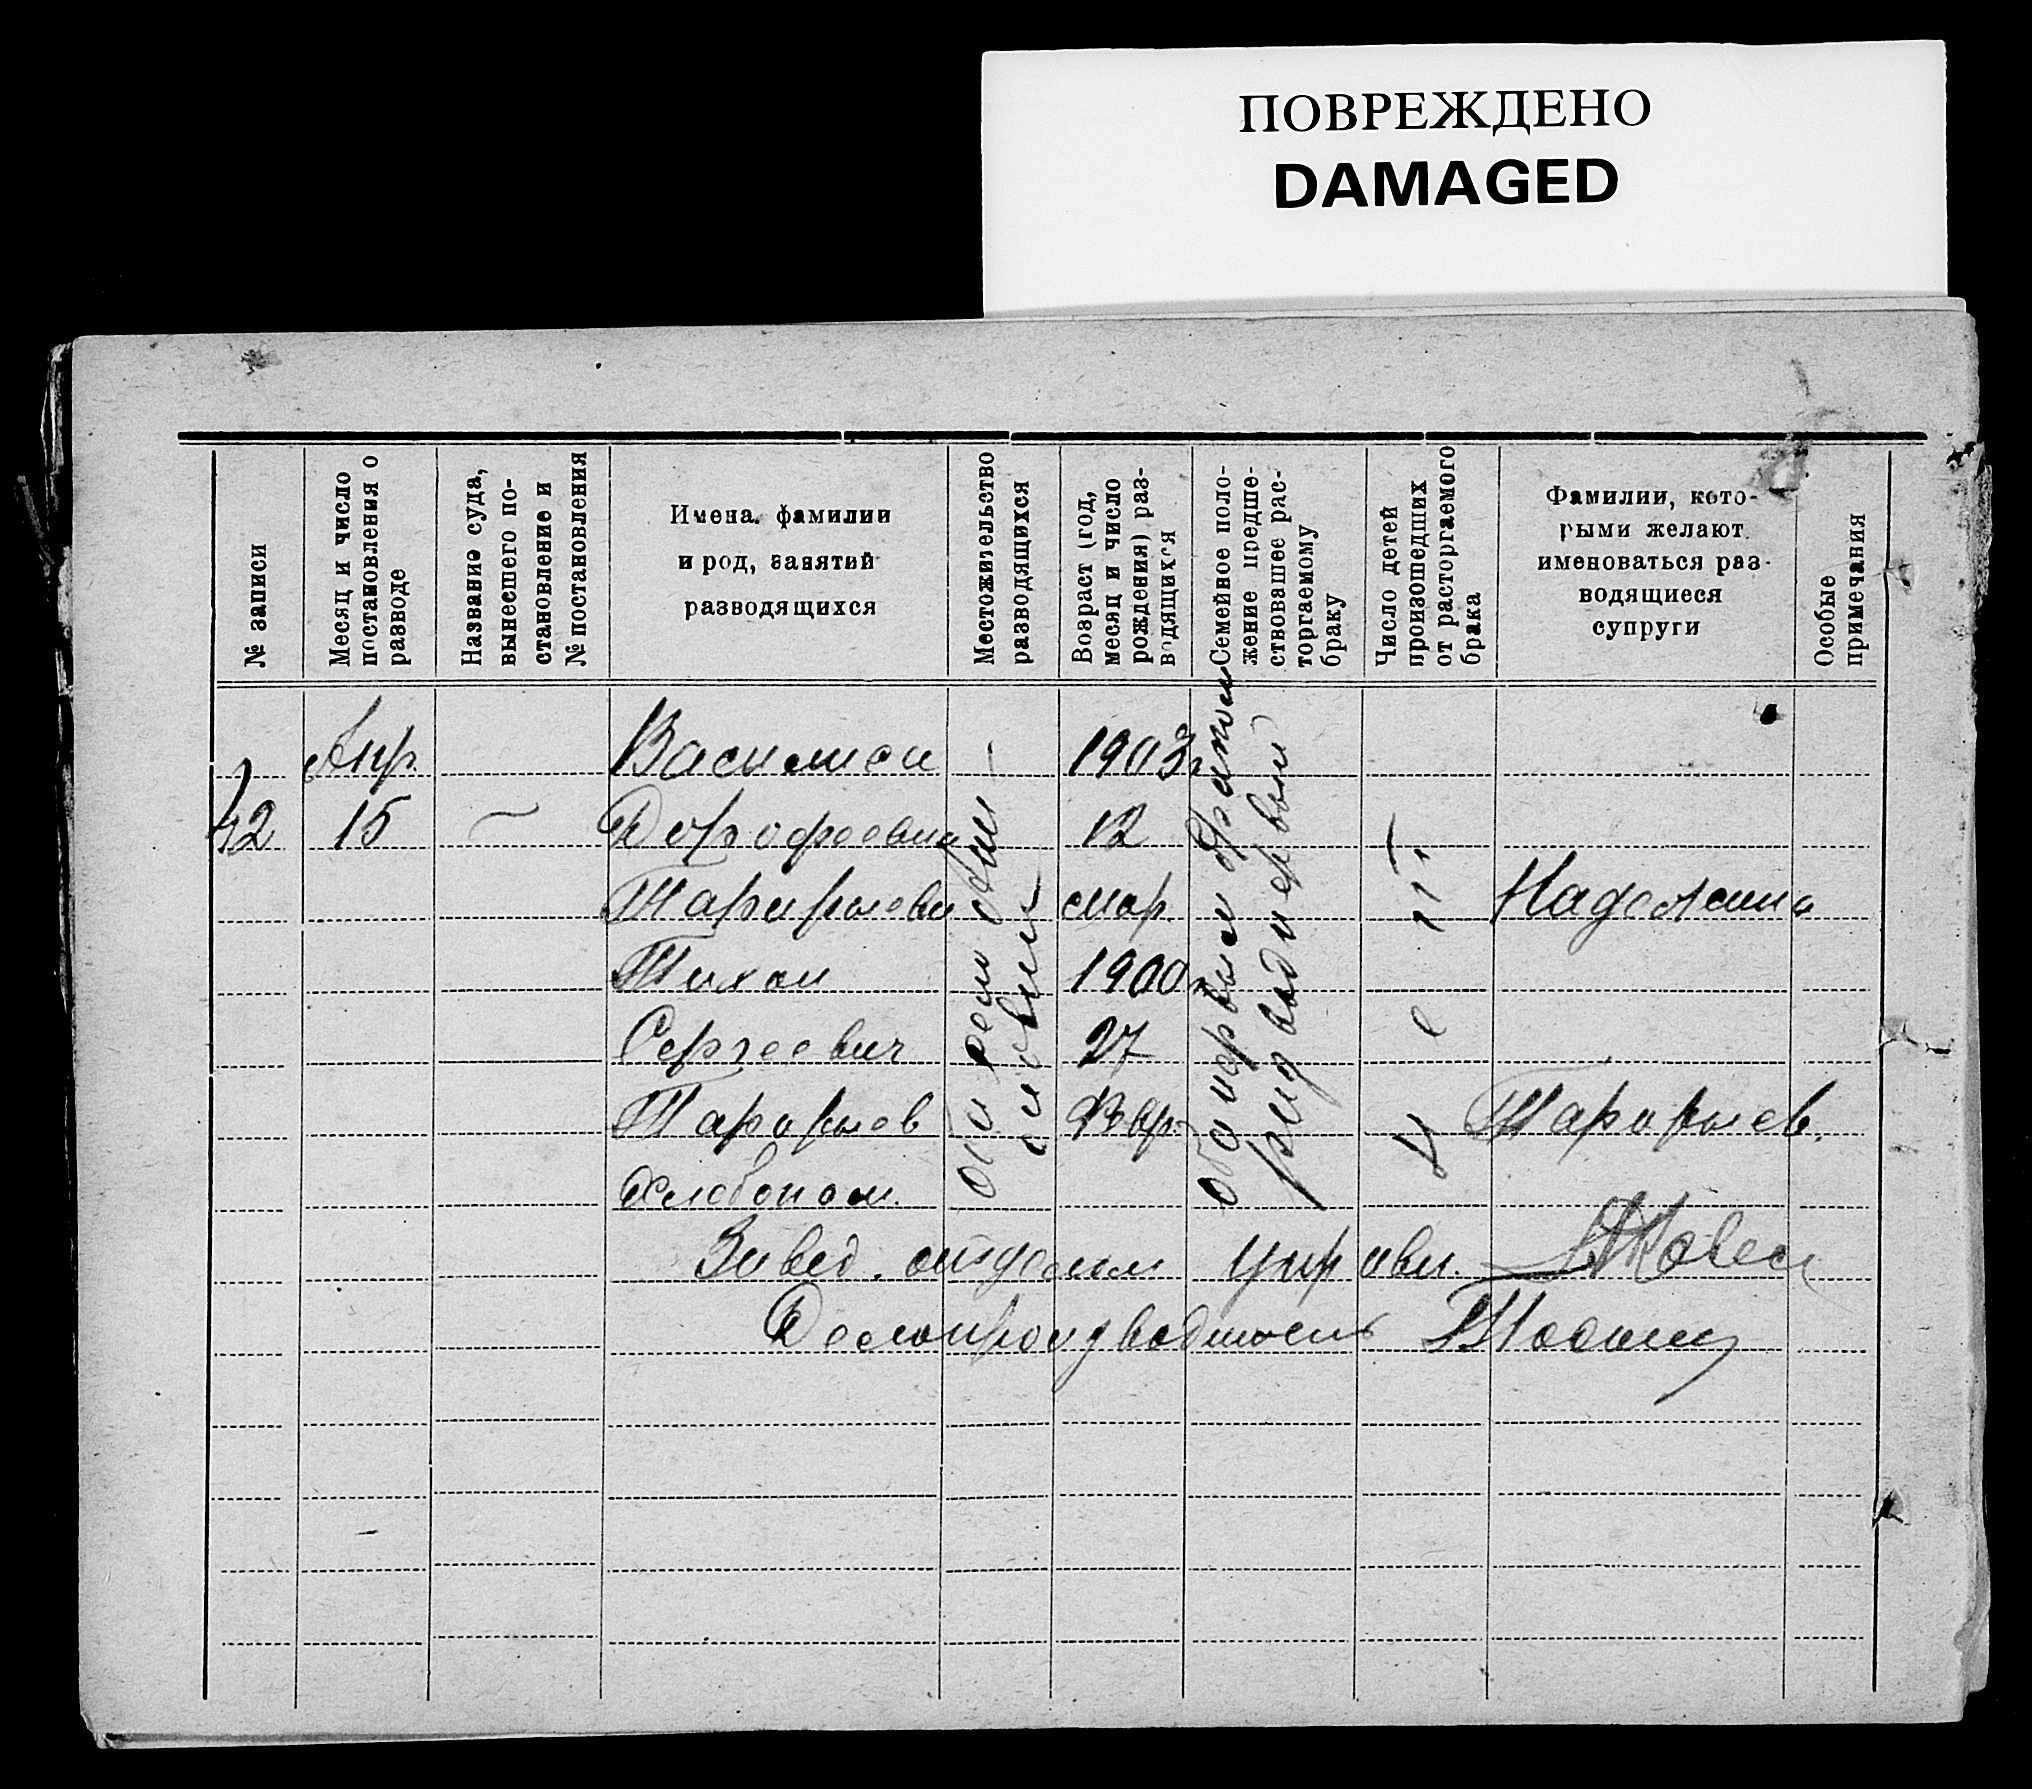 ПОВРЕЖДЕНО
DAMAGED
№ записи
Месяц и число
постановления о
разводе
Название суда,
вынесшего по-
становление и
№ постановления
Имена, фамилии
и род, занятий
разводящихся
Местожительство
разводящихся
Возраст (год,
месяц и число
рождения) раз-
водящихся
Семейное поло-
жение предше-
ствовавшее рас-
торгаемому
браку
Число детей
происшедших
от расторгаемого
брака
Фамилии, кото-
рыми желают
именоваться раз-
водящиеся
супруги
Особые
примечания
Апр. Василиса 1903г
42 15 — Дорофеевна 12
мар.
Тихон 1900г
Сергеевич 27
Хлебопаш.
оба первым браком
развод первый
Завед. отделом управл.
Делопроизводитель